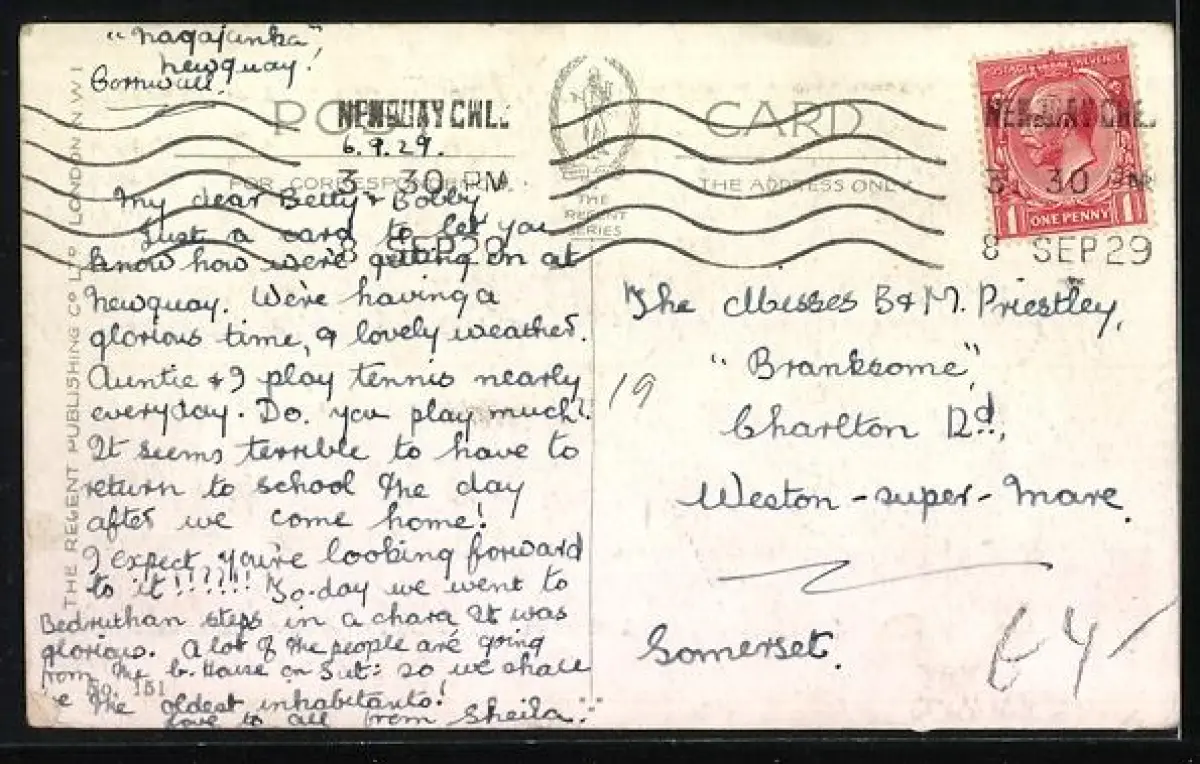 "Nagajunka",
Newquay.
Cornwall.
POST CARD
NEWQUAY CWL.
6.9.29.
3 30 PM
8 SEP 29
FOR CORRESPONDENCE
THE ADDRESS ONLY
THE
REGENT
SERIES
THE REGENT PUBLISHING Co LTD LONDON N W 1
No. 151
My dear Betty & Bobby
Just a card to let you
know how we're getting on at
Newquay. We're having a
glorious time, & lovely weather.
Auntie & I play tennis nearly
everyday. Do you play much?
It seems terrible to have to
return to school the day
after we come home!
I expect you're looking forward
to it!!!???!!! To-day we went to
Bedruthan steps in a chara It was
glorious. A lot of the people are going
from the b. House on Sat: so we shall
be the oldest inhabitants!
Love to all from Sheila.
POSTAGE REVENUE
NEWQUAY CWL.
3 30 PM
1 ONE PENNY 1
8 SEP 29
The Misses B & M. Priestley,
"Branksome",
Charlton Rd.,
Weston-super-Mare.
Somerset.
19
64/-